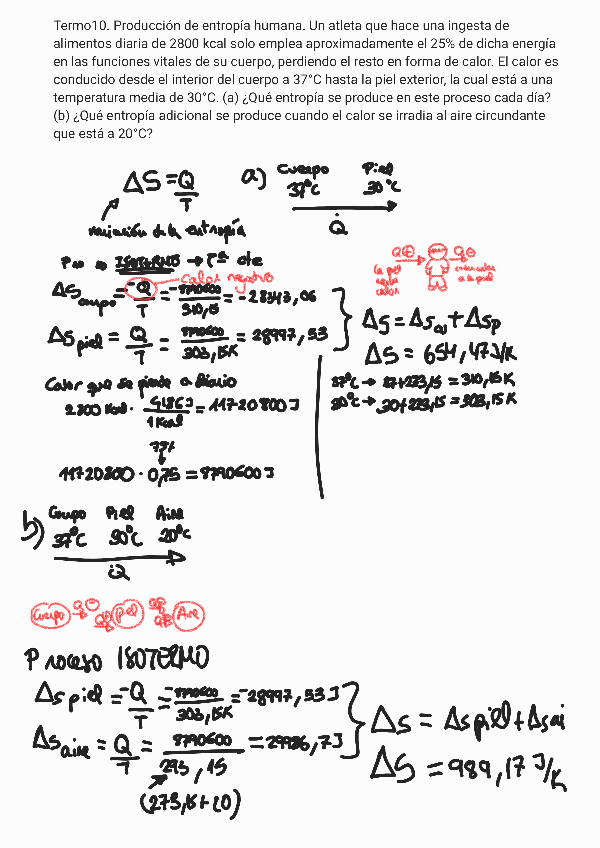 Termo10. Producción de entropía humana. Un atleta que hace una ingesta de
alimentos diaria de 2800 kcal solo emplea aproximadamente el 25% de dicha energía
en las funciones vitales de su cuerpo, perdiendo el resto en forma de calor. El calor es
conducido desde el interior del cuerpo a 37°C hasta la piel exterior, la cual está a una
temperatura media de 30°C. (a) ¿Qué entropía se produce en este proceso cada día?
(b) ¿Qué entropía adicional se produce cuando el calor se irradia al aire circundante
que está a 20°C?
ΔS = Q/T
a) Cuerpo Piel
37°C 30°C
Q
variación de la entropía
ISOTERMO → Tª cte
Calor negativo
Q⊕ Q⊖
La piel calor
a la piel
ΔS cuerpo = -Q/T = -8790600/310,15 = -28343,06
ΔS piel = Q/T = 8790600/303,15K = 28997,53
ΔS = ΔSc + ΔSp
ΔS = 654,47 J/K
37°C → 37+273,15 = 310,15K
30°C → 30+273,15 = 303,15K
Calor que se pierde a diario
2800 Kcal · 4186J/1Kcal = 11720800J
11720800 · 0,75 = 8790600J
b) Cuerpo Piel Aire
37°C 30°C 20°C
Q
Cuerpo Piel Aire
Proceso ISOTERMO
ΔS piel = -Q/T = -8790600/303,15K = -28997,53J
ΔS aire = Q/T = 8790600/293,15 = 29986,7J
(273,15+20)
ΔS = ΔSpiel + ΔSai
ΔS = 989,17 J/K